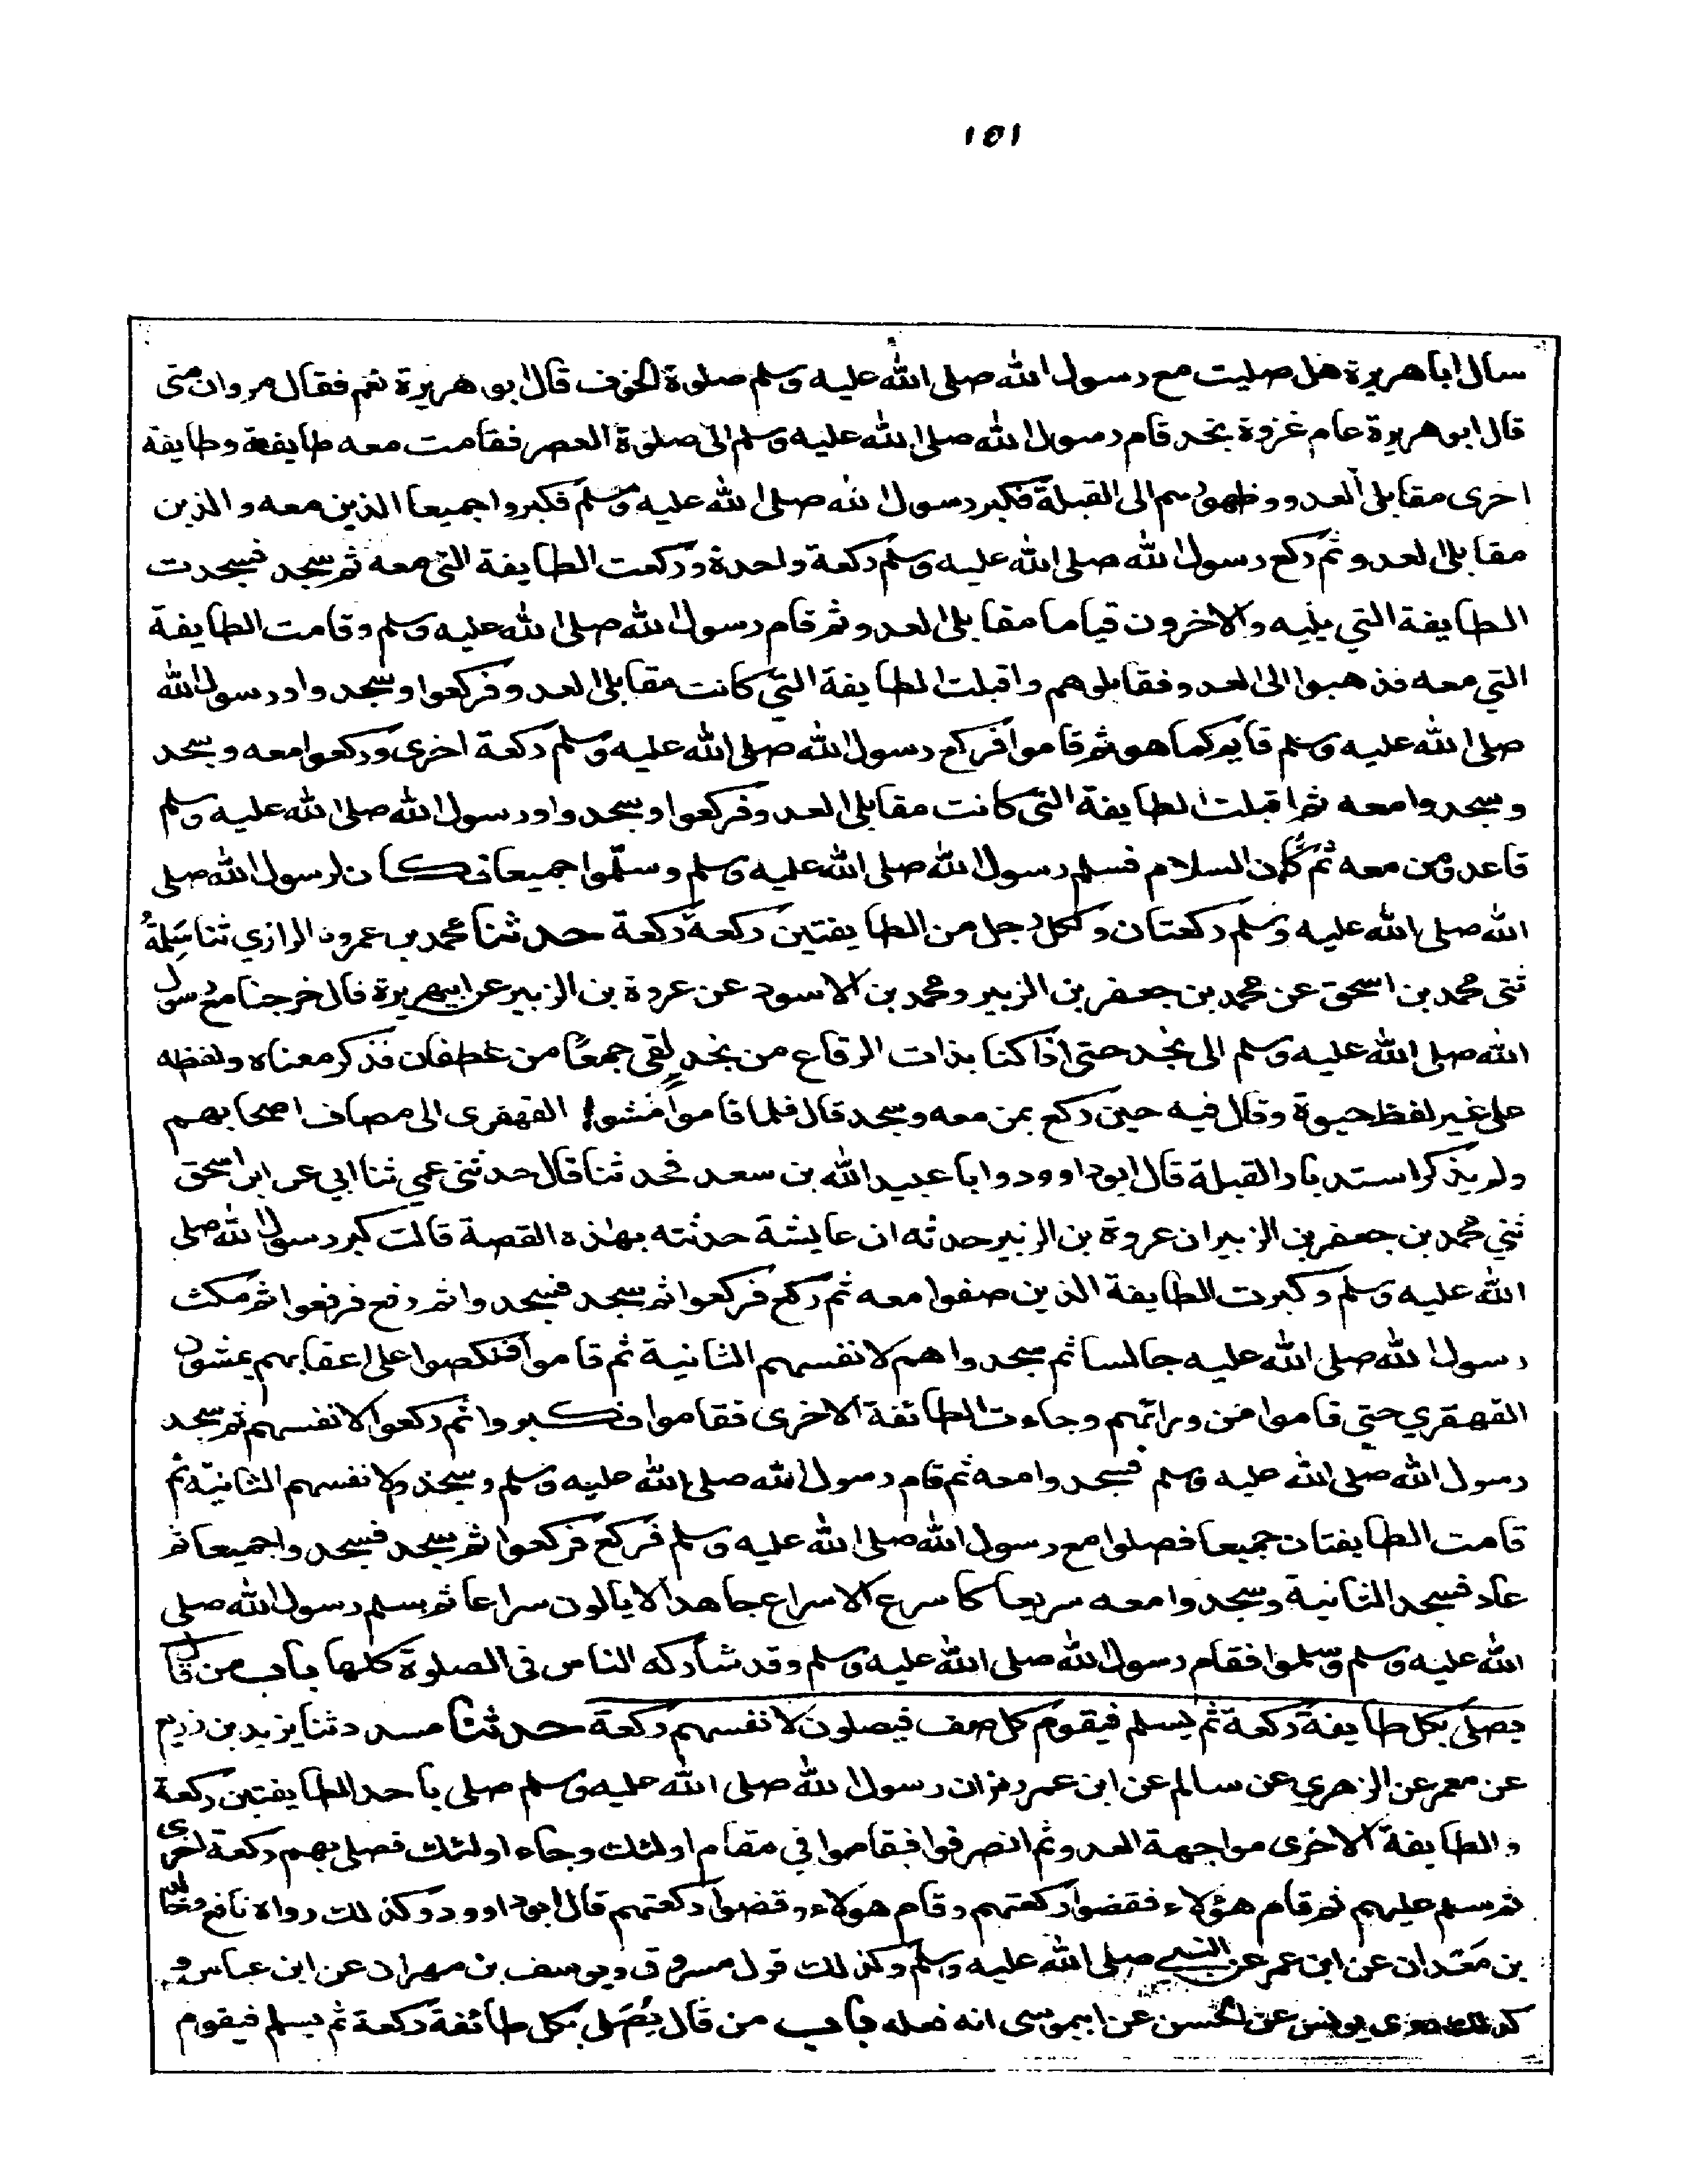 ١٥١
سال ابا هريرة هل صليت مع رسول الله صلى الله عليه وسلم صلوة الخوف قال ابو هريرة نعم فقال مروان متى
قال ابو هريرة عام غزوة نجد قام رسول الله صلى الله عليه وسلم الى صلوة العصر فقامت معه طايفة وطايفة
اخرى مقابلى العدو وظهورهم الى القبلة فكبر رسول الله صلى الله عليه وسلم فكبروا جميعا الذين معه والذين
مقابلى العدو ثم ركع رسول الله صلى الله عليه وسلم ركعة واحدة وركعت الطايفة التي معه ثم سجد فسجدت
الطايفة التي يليه والاخرون قياما مقابلى العدو ثم قام رسول الله صلى الله عليه وسلم وقامت الطايفة
التي معه فذهبوا الى العدو فقابلوهم واقبلت الطايفة التي كانت مقابلى العدو فركعوا وسجدوا ورسول الله
صلى الله عليه وسلم قايم كما هو ثم قاموا فركع رسول الله صلى الله عليه وسلم ركعة اخرى وركعوا معه وسجد
وسجدوا معه ثم اقبلت الطايفة التي كانت مقابلى العدو فركعوا وسجدوا ورسول الله صلى الله عليه وسلم
قاعد ومن معه ثم كان السلام فسلم رسول الله صلى الله عليه وسلم وسلموا جميعا فكان لرسول الله صلى
الله صلى الله عليه وسلم ركعتان ولكل رجل من الطايفتين ركعة ركعة حدثنا محمد بن عمرو الرازي ثنا سلمة
ثنى محمد بن اسحق عن محمد بن جعفر بن الزبير ومحمد بن الاسود عن عروة بن الزبير عن ابيهريرة قال خرجنا مع رسول
الله صلى الله عليه وسلم الى نجد حتى اذا كنا بذات الرقاع من نجد لقى جمعا من غطفان فذكر معناه ولفظه
على غير لفظ حيوة وقال فيه حين ركع بمن معه وسجد قال فلما قاموا مشوا القهقرى الى مصاف اصحابهم
ولم يذكر استدبار القبلة قال ابو داوود وابا عبيد الله بن سعد فحدثنا قال حدثنى عمي ثنا ابي عن ابن اسحق
ثني محمد بن جعفر بن الزبير ان عروة بن الزبير حدثه ان عايشة حدثته بهذه القصة قالت كبر رسول الله صلى
الله عليه وسلم وكبرت الطايفة الذين صفوا معه ثم ركع فركعوا ثم سجد فسجدوا ثم رفع فرفعوا ثم مكث
رسول الله صلى الله عليه جالسا ثم سجدوا هم لانفسهم الثانية ثم قاموا فنكصوا على اعقابهم يمشون
القهقري حتي قاموا من ورائهم وجاءت الطائفة الاخرى فقاموا فكبروا ثم ركعوا لانفسهم ثم سجد
رسول الله صلى الله عليه وسلم فسجدوا معه ثم قام رسول الله صلى الله عليه وسلم وسجدوا لانفسهم الثانية ثم
قامت الطايفتان جميعا فصلوا مع رسول الله صلى الله عليه وسلم فركع فركعوا ثم سجد فسجدوا جميعا ثم
عاد فسجد الثانية وسجدوا معه سريعا كاسرع الاسراع جاهدا لا يالون سراعا ثم سلم رسول الله صلى
الله عليه وسلم وسلموا فقام رسول الله صلى الله عليه وسلم وقد شاركه الناس فى الصلوة كلها باب من قال
يصلى بكل طايفة ركعة ثم يسلم فيقوم كل صف فيصلون لانفسهم ركعة حدثنا مسدد ثنا يزيد بن زريع
عن معمر عن الزهري عن سالم عن ابن عمر ان رسول الله صلى الله عليه وسلم صلى باحد الطايفتين ركعة
والطايفة الاخرى مواجهة العدو ثم انصرفوا فقاموا في مقام اولئك وجاء اولئك فصلى بهم ركعة اخرى
ثم سلم عليهم ثم قام هؤلاء فقضوا ركعتهم وقام هولاء وقضوا ركعتهم قال ابو داوود وكذلك رواه نافع وخالد
بن معدان عن ابن عمر عن النبي صلى الله عليه وسلم وكذلك قول مسروق ويوسف بن مهران عن ابن عباس و
كذلك روى يونس عن الحسن عن ابيموسى انه فعله باب من قال يصلى بكل طائفة ركعة ثم يسلم فيقوم